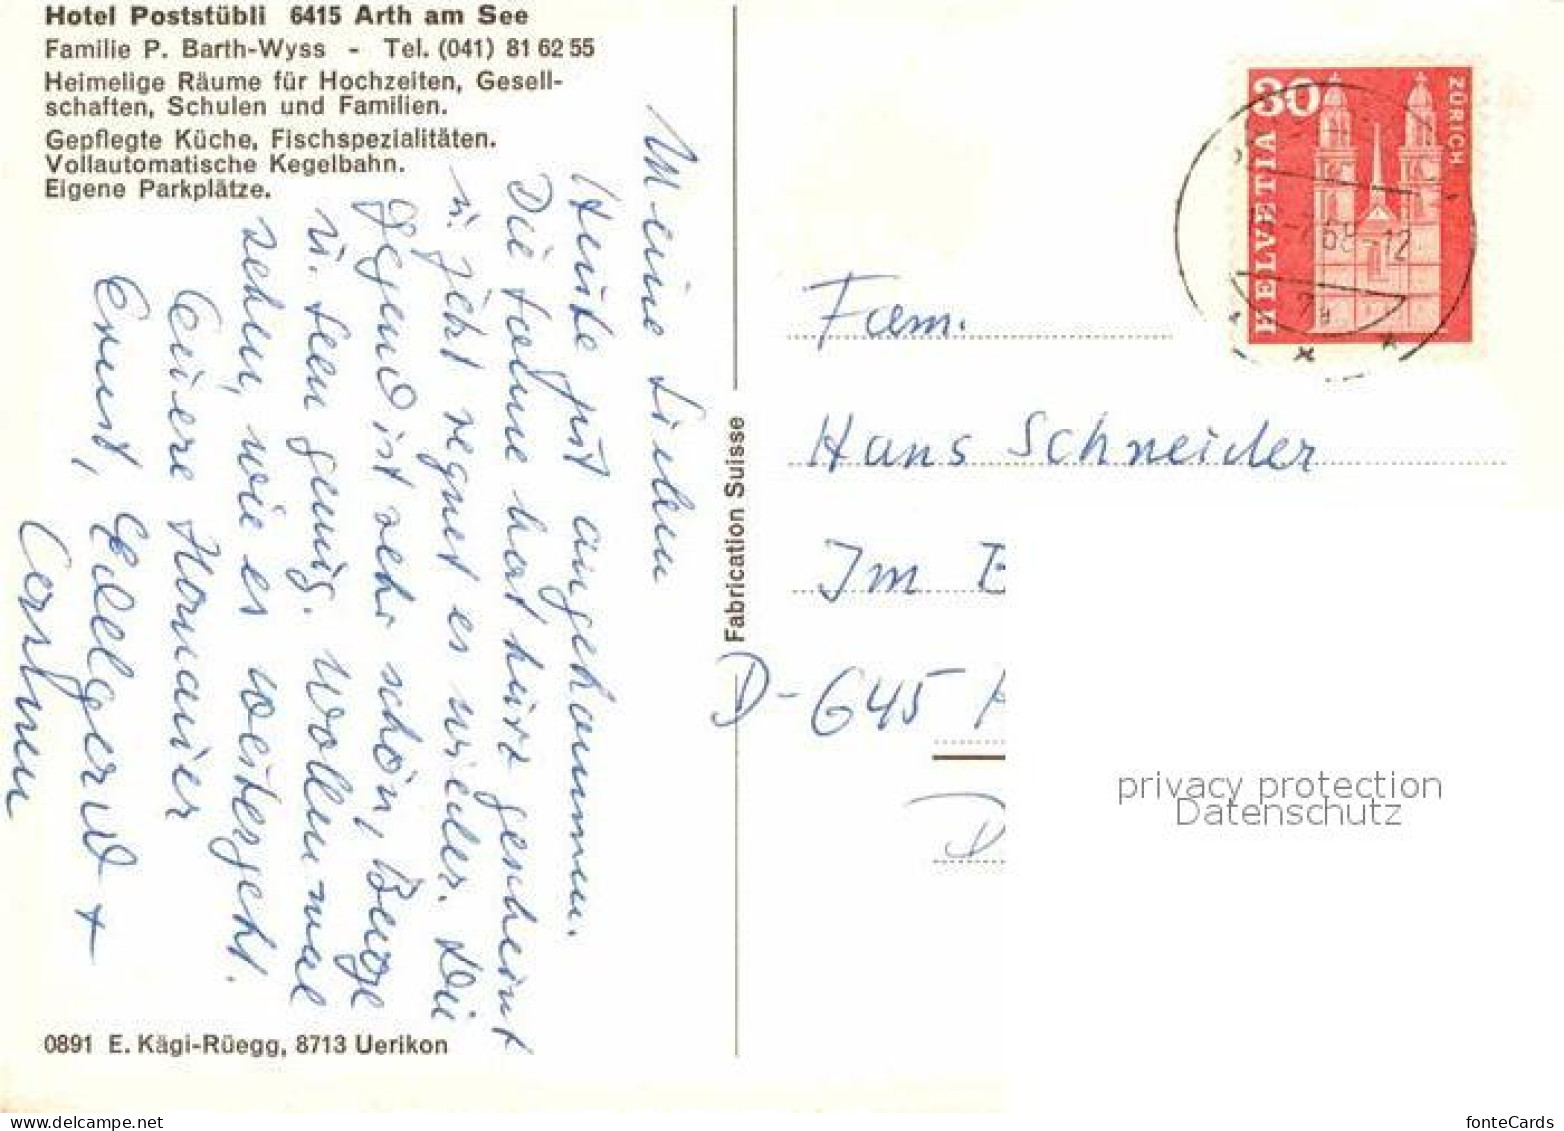 Hotel Poststübli 6415 Arth am See
Familie P. Barth-Wyss - Tel. (041) 81 62 55
Heimelige Räume für Hochzeiten, Gesell-
schaften, Schulen und Familien.
Gepflegte Küche, Fischspezialitäten.
Vollautomatische Kegelbahn.
Eigene Parkplätze.
Meine Lieben
Heute gut angekommen.
Die Sonne hat kurz gescheint
u. jetzt regnet es wieder. Die
Gegend ist sehr schön, Berge
u. Seen genug. Wollen mal
sehen, wie es weitergeht.
Euere Hornauer
Ernst, Edelgerd +
0891 E. Kägi-Rüegg, 8713 Uerikon
Fabrication Suisse
30
HELVETIA
ZÜRICH
68-12
Fam.
Hans Schneider
Im
D-645
D
privacy protection
Datenschutz
fonteCards